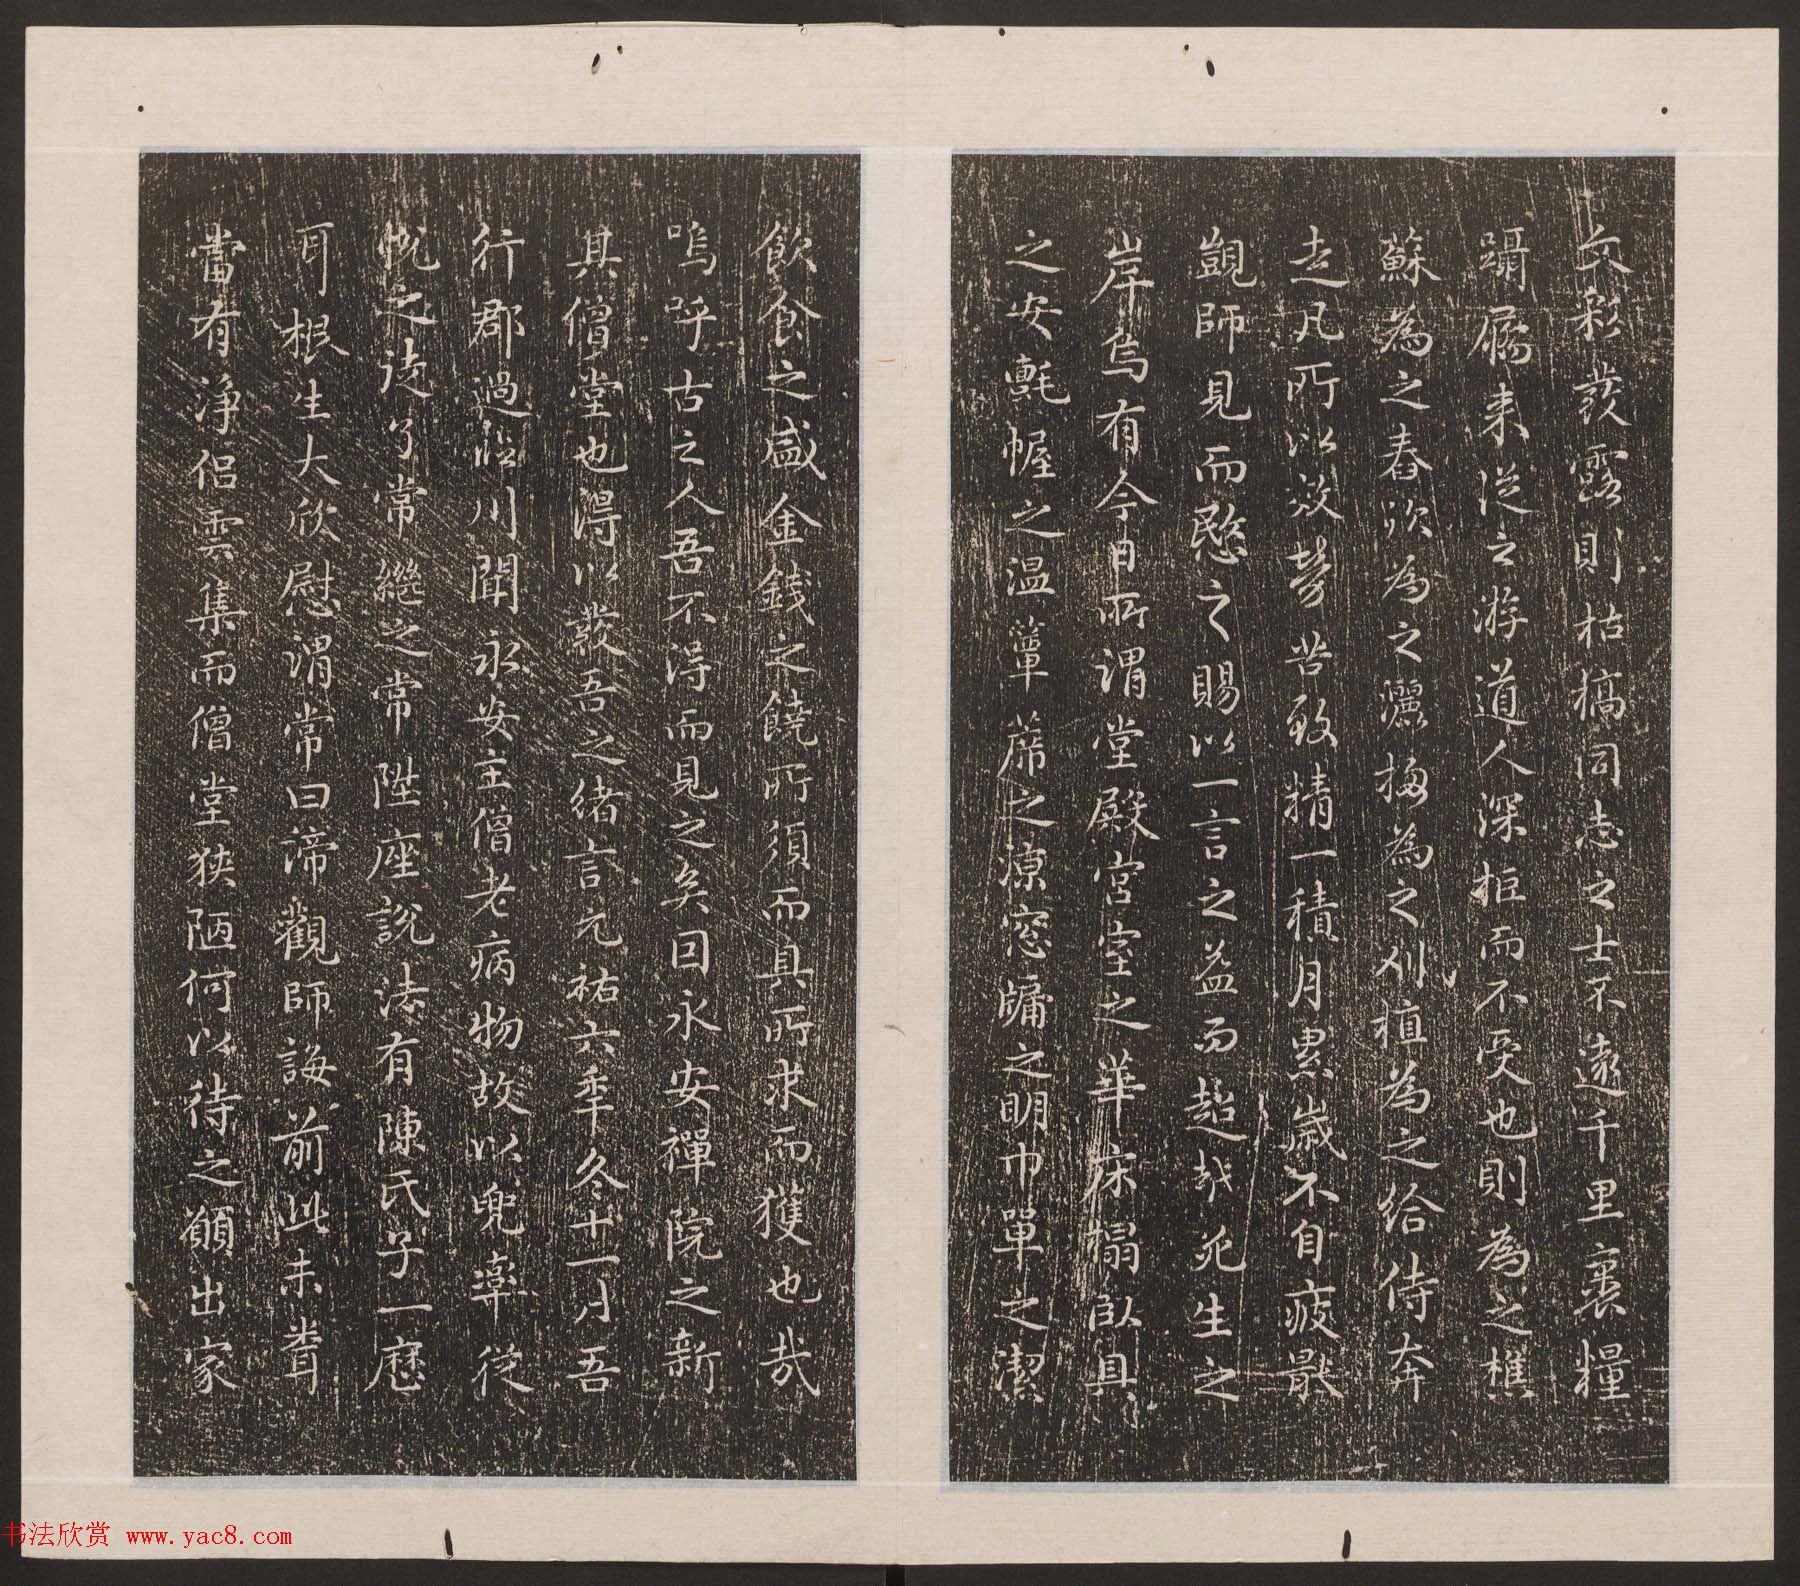 文彩發露則枯槁同志之士不遠千里裹糧
躡屩来從之游道人深拒而不受也則為之樵
蘇為之舂炊為之灑掃為之刈植為之給侍奔
走凡所以效勞苦致精一積月累歲不自疲厭
覬師見而愍之賜以一言之益而超越死生之
岸烏有今日所謂堂殿宮室之華床榻臥具
之安氈幄之温簟蓆之涼窓牖之明巾單之潔
飲食之盛金錢之饒所須而具所求而獲也哉
嗚呼古之人吾不得而見之矣因永安禪院之新
其僧堂也得以發吾之緒言元祐六年冬十一月吾
行郡過臨川聞永安主僧老病物故以兜率從
悅之徒了常繼之常陞座説法有陳氏子一歷
耳根生大欣慰謂常曰諦觀師誨前此未聞
當有淨侣雲集而僧堂狹陋何以待之願出家
书法欣赏 www.yac8.com